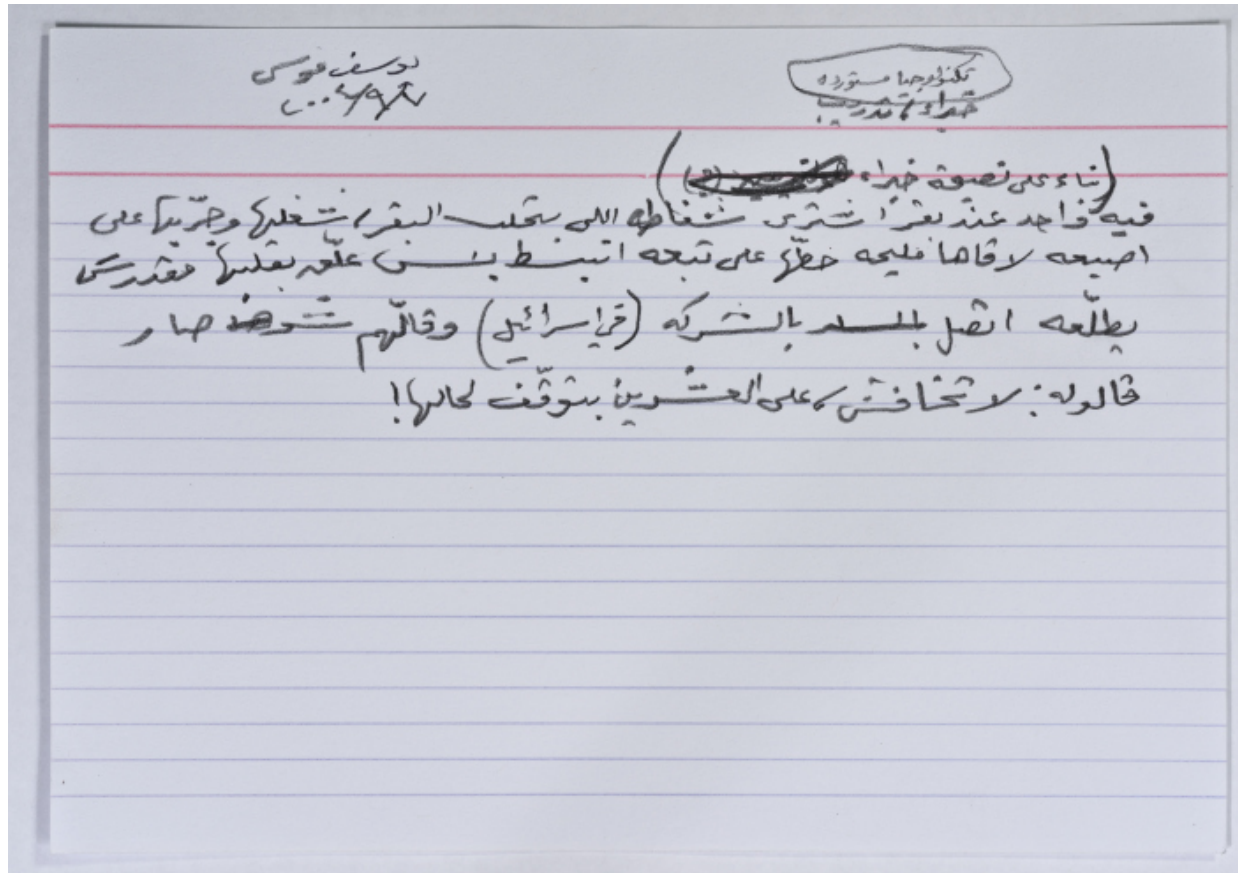 تكنولوجيا مستورده
يوسف موسى
خبراء،
(بناء على نصيحة خبراء
فيه واحد عنده بقر اشترى شفاطه اللي بتحلب البقر، شغلها وجرّبها على
اصبعه لاقاها مليحه حطّها على تبعه انبسط بس علّق بقلبها مقدرش
يطلّعه اتصل بالشركه (في اسرائيل) وقالّهم شو صار
قالوله: لا تخافش، على العشرين بتوقّف لحالها!